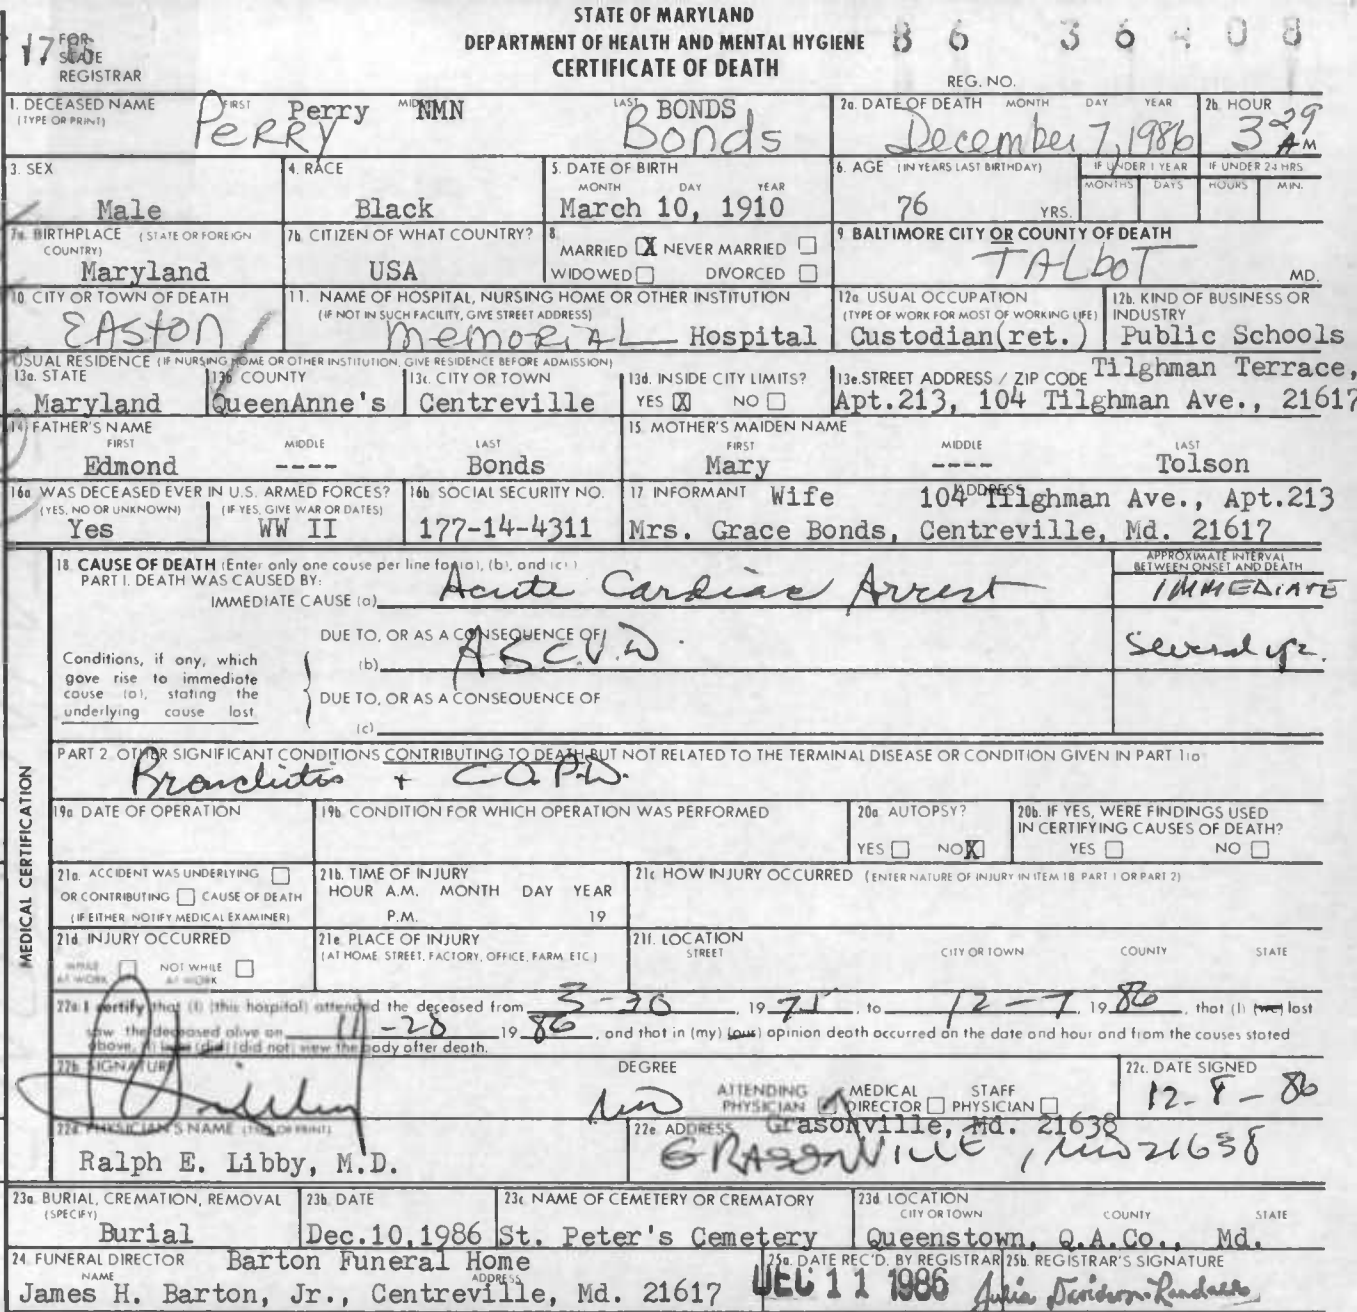 STATE OF MARYLAND
DEPARTMENT OF HEALTH AND MENTAL HYGIENE
CERTIFICATE OF DEATH
FOR STATE REGISTRAR
86 36408
REG. NO.
1. DECEASED NAME (TYPE OR PRINT) FIRST MIDDLE LAST
Perry NMN BONDS
PERRY Bonds
2a. DATE OF DEATH MONTH DAY YEAR
December 7, 1986
2b. HOUR
3 29 AM
3. SEX
Male
4. RACE
Black
5. DATE OF BIRTH
MONTH DAY YEAR
March 10, 1910
6. AGE (IN YEARS LAST BIRTHDAY)
76 YRS.
IF UNDER 1 YEAR MONTHS DAYS
IF UNDER 24 HRS HOURS MIN.
7a. BIRTHPLACE (STATE OR FOREIGN COUNTRY)
Maryland
7b. CITIZEN OF WHAT COUNTRY?
USA
8. MARRIED X NEVER MARRIED
WIDOWED DIVORCED
9. BALTIMORE CITY OR COUNTY OF DEATH
TALbOT MD.
10. CITY OR TOWN OF DEATH
EASTON
11. NAME OF HOSPITAL, NURSING HOME OR OTHER INSTITUTION
(IF NOT IN SUCH FACILITY, GIVE STREET ADDRESS)
MEMORIAL Hospital
12a. USUAL OCCUPATION
(TYPE OF WORK FOR MOST OF WORKING LIFE)
Custodian(ret.)
12b. KIND OF BUSINESS OR INDUSTRY
Public Schools
USUAL RESIDENCE (IF NURSING HOME OR OTHER INSTITUTION, GIVE RESIDENCE BEFORE ADMISSION)
13a. STATE
Maryland
13b. COUNTY
QueenAnne's
13c. CITY OR TOWN
Centreville
13d. INSIDE CITY LIMITS?
YES X NO
13e. STREET ADDRESS / ZIP CODE Tilghman Terrace,
Apt.213, 104 Tilghman Ave., 21617
14. FATHER'S NAME
FIRST MIDDLE LAST
Edmond ---- Bonds
15. MOTHER'S MAIDEN NAME
FIRST MIDDLE LAST
Mary ---- Tolson
16a. WAS DECEASED EVER IN U.S. ARMED FORCES?
(YES, NO OR UNKNOWN) (IF YES, GIVE WAR OR DATES)
Yes WW II
16b. SOCIAL SECURITY NO.
177-14-4311
17. INFORMANT Wife ADDRESS 104 Tilghman Ave., Apt.213
Mrs. Grace Bonds, Centreville, Md. 21617
MEDICAL CERTIFICATION
18. CAUSE OF DEATH (Enter only one cause per line for (a), (b), and (c).)
PART I. DEATH WAS CAUSED BY:
IMMEDIATE CAUSE (a) Acute Cardiac Arrest
APPROXIMATE INTERVAL BETWEEN ONSET AND DEATH
IMMEDIATE
Conditions, if any, which gave rise to immediate cause (a), stating the underlying cause last
DUE TO, OR AS A CONSEQUENCE OF
(b) A.S.C.V.D. Several yr.
DUE TO, OR AS A CONSEQUENCE OF
(c)
PART 2. OTHER SIGNIFICANT CONDITIONS CONTRIBUTING TO DEATH BUT NOT RELATED TO THE TERMINAL DISEASE OR CONDITION GIVEN IN PART 1(a)
Bronchitis + C.O.P.D.
19a. DATE OF OPERATION
19b. CONDITION FOR WHICH OPERATION WAS PERFORMED
20a. AUTOPSY?
YES NO X
20b. IF YES, WERE FINDINGS USED IN CERTIFYING CAUSES OF DEATH?
YES NO
21a. ACCIDENT WAS UNDERLYING
OR CONTRIBUTING CAUSE OF DEATH
(IF EITHER NOTIFY MEDICAL EXAMINER)
21b. TIME OF INJURY
HOUR A.M. MONTH DAY YEAR
P.M. 19
21c. HOW INJURY OCCURRED (ENTER NATURE OF INJURY IN ITEM 18 PART 1 OR PART 2)
21d. INJURY OCCURRED
WHILE AT WORK NOT WHILE AT WORK
21e. PLACE OF INJURY
(AT HOME, STREET, FACTORY, OFFICE, FARM, ETC.)
21f. LOCATION
STREET CITY OR TOWN COUNTY STATE
22a. I certify that (I) (this hospital) attended the deceased from 3-30, 1975, to 12-7, 1986, that (I) (we) last
saw the deceased alive on 11-28 1986, and that in (my) (our) opinion death occurred on the date and hour and from the causes stated
above, (I) (did) (did not) view the body after death.
22b. SIGNATURE
DEGREE
MD
ATTENDING PHYSICIAN MEDICAL DIRECTOR STAFF PHYSICIAN
22c. DATE SIGNED
12-8-86
22d. PHYSICIAN'S NAME (TYPE OR PRINT)
Ralph E. Libby, M.D.
22e. ADDRESS Grasonville, Md. 21638
GRASONVILLE, MD 21638
23a. BURIAL, CREMATION, REMOVAL (SPECIFY)
Burial
23b. DATE
Dec.10,1986
23c. NAME OF CEMETERY OR CREMATORY
St. Peter's Cemetery
23d. LOCATION
CITY OR TOWN COUNTY STATE
Queenstown, Q.A.Co., Md.
24. FUNERAL DIRECTOR Barton Funeral Home
NAME ADDRESS
James H. Barton, Jr., Centreville, Md. 21617
25a. DATE REC'D. BY REGISTRAR
DEC 11 1986
25b. REGISTRAR'S SIGNATURE
Julia Davidson-Randall